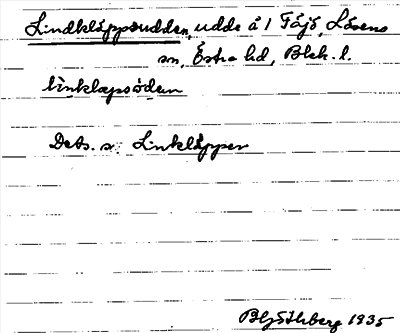 Lindklåppsudden, udde å 1 Tåjö, Lösens
sn, Östra hd, Blek. l.
linklapsödem
Dets. s: Linklåppen
1935